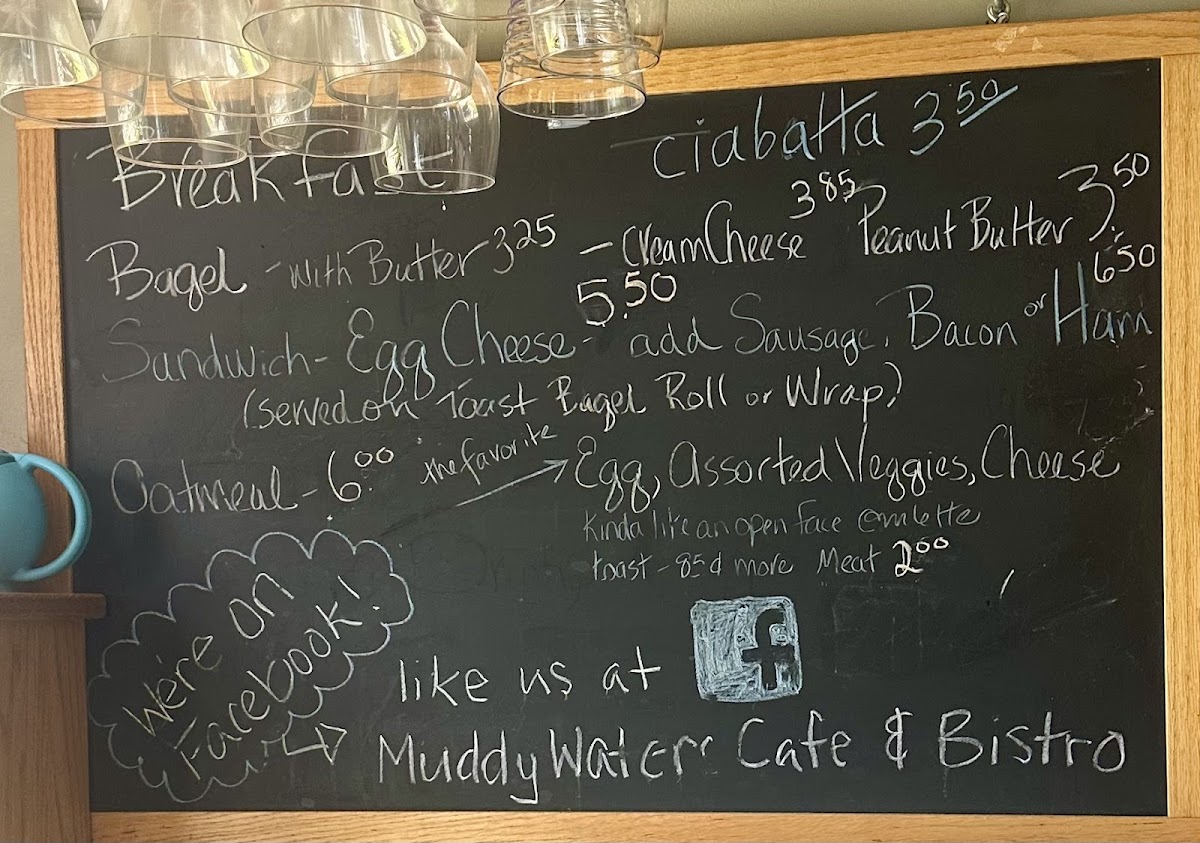 Breakfast - ciabatta 3 50
Bagel - with Butter 3 25 - Cream Cheese 3 85 Peanut Butter 3.50
Sandwich - Egg Cheese - 5.50 add Sausage, Bacon or Ham 6.50
(served on Toast Bagel Roll or Wrap)
Oatmeal - 6.00 the favorite → Egg, Assorted Veggies, Cheese
Kinda like an open face omlette
toast - 85¢ more Meat 2 00
We're on
Facebook!
like us at f
Muddy Water Cafe & Bistro